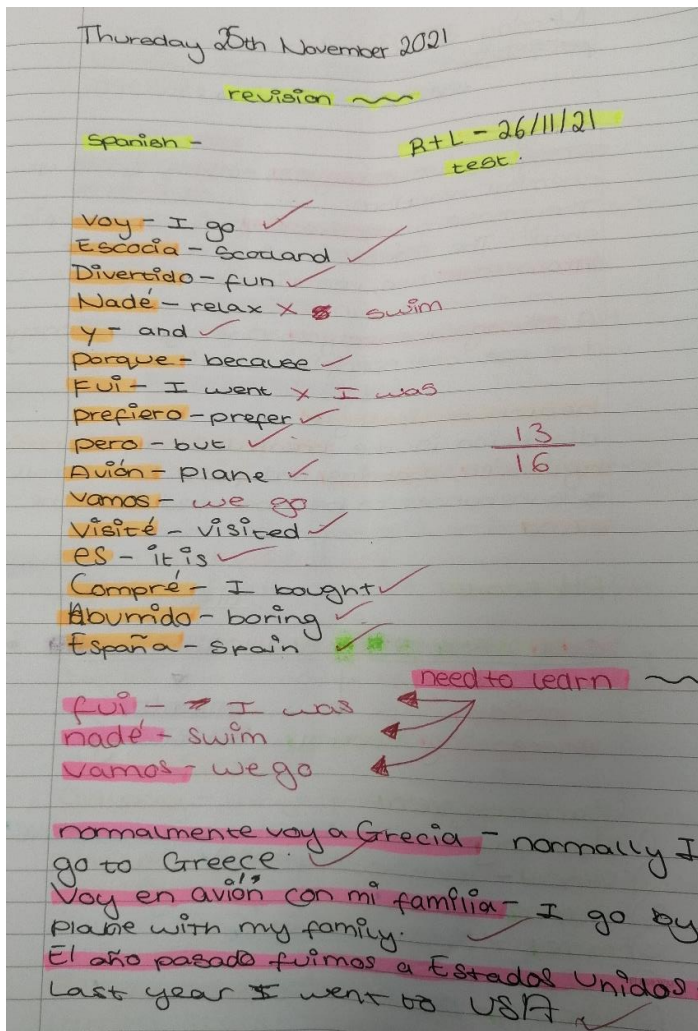 Thursday 25th November 2021
revision
Spanish -
R+L - 26/11/21
test.
Voy - I go ✓
Escocia - Scotland ✓
Divertido - fun ✓
Nadé - relax × swim
y - and ✓
porque - because ✓
Fui - I went × I was
prefiero - prefer ✓
pero - but ✓
13
16
Avión - plane ✓
Vamos - we go
Visité - visited ✓
es - it is ✓
Compré - I bought ✓
Aburrido - boring ✓
España - Spain ✓
need to learn
fui - I was
nadé - swim
vamos - we go
normalmente voy a Grecia - normally I
go to Greece. ✓
Voy en avión con mi familia - I go by
plane with my family. ✓
El año pasado fuimos a Estados Unidos -
Last year I went to USA ✓